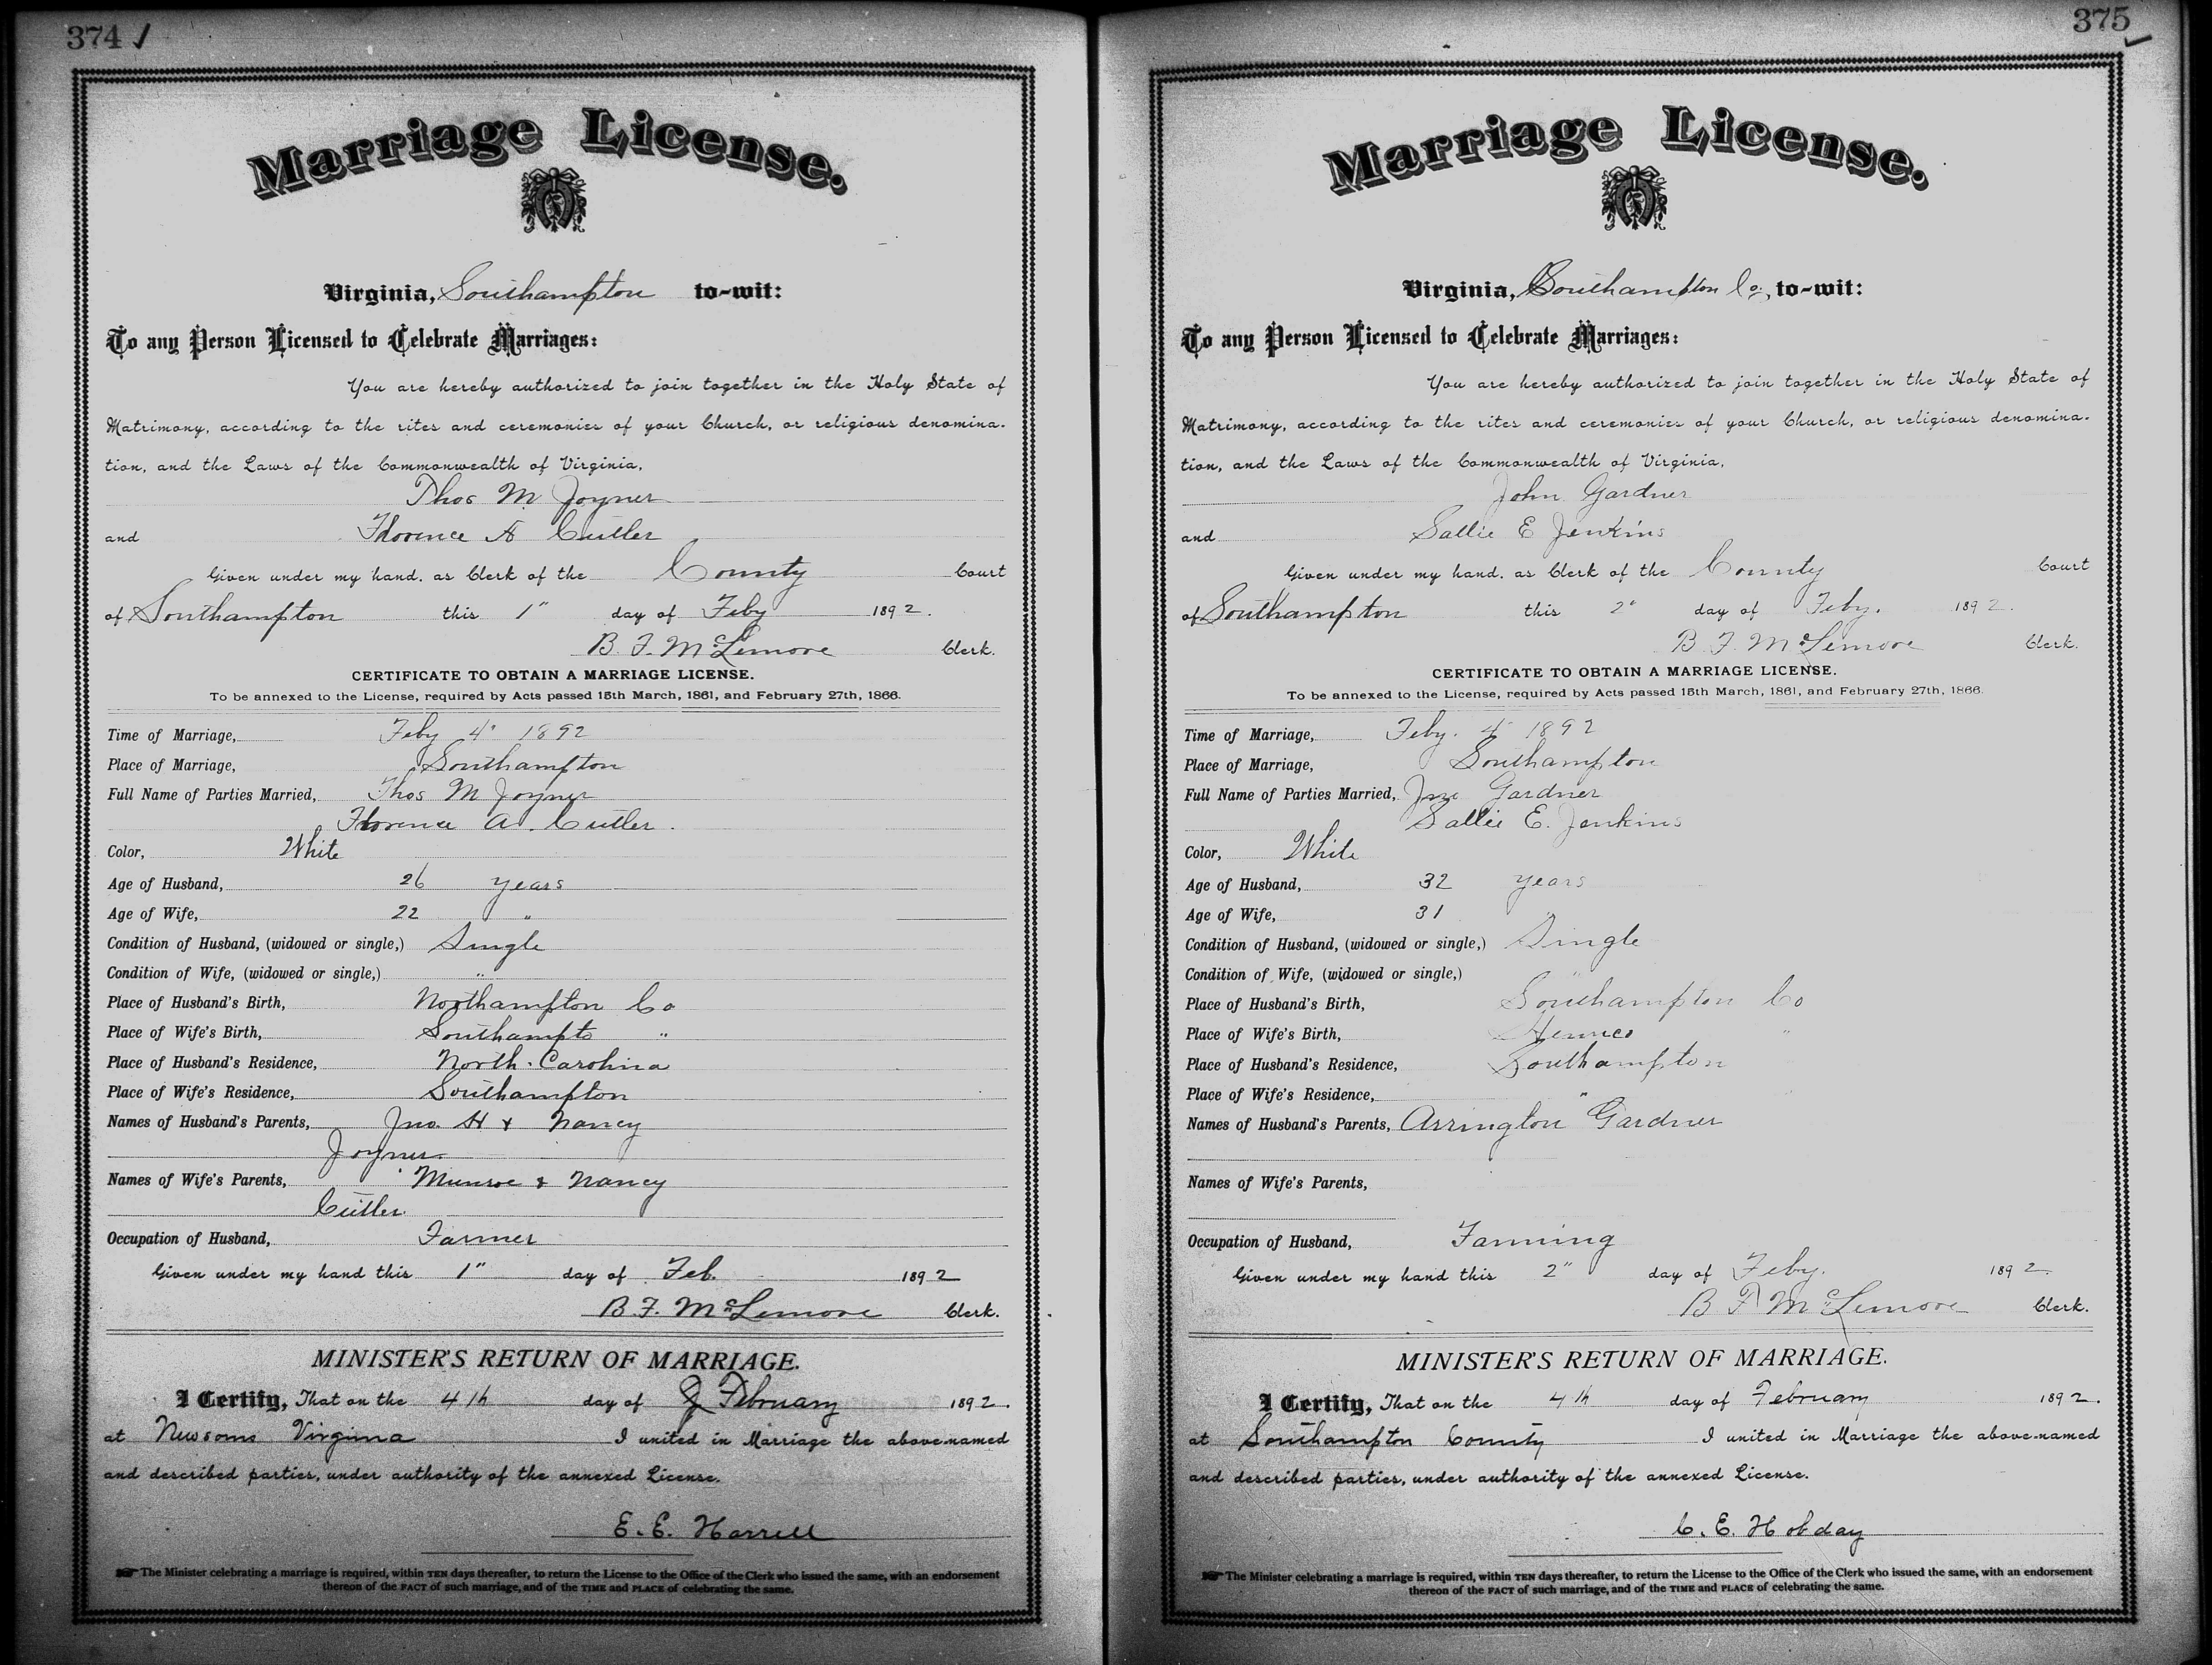 374
Marriage License.
Virginia, Southampton to-wit:
To any Person Licensed to Celebrate Marriages:
You are hereby authorized to join together in the Holy State of
Matrimony, according to the rites and ceremonies of your Church, or religious denomina-
tion, and the Laws of the Commonwealth of Virginia,
Thos M. Joyner
and Florence A Cutler
Given under my hand, as Clerk of the County Court
of Southampton this 1" day of Feby 1892.
B. F. McLemore Clerk.
CERTIFICATE TO OBTAIN A MARRIAGE LICENSE.
To be annexed to the License, required by Acts passed 15th March, 1861, and February 27th, 1866.
Time of Marriage, Feby 4" 1892
Place of Marriage, Southampton
Full Name of Parties Married, Thos M Joyner
Florence A. Cutler.
Color, White
Age of Husband, 26 years
Age of Wife, 22 "
Condition of Husband, (widowed or single,) Single
Condition of Wife, (widowed or single,) "
Place of Husband's Birth, Northampton Co
Place of Wife's Birth, Southampto "
Place of Husband's Residence, North Carolina
Place of Wife's Residence, Southampton
Names of Husband's Parents, Jno. H & Nancy
Joyner
Names of Wife's Parents, Munroe & Nancy
Cutler.
Occupation of Husband, Farmer
Given under my hand this 1" day of Feb. 1892
B. F. McLemore Clerk.
MINISTER'S RETURN OF MARRIAGE.
I Certify, That on the 4th day of February 1892.
at Newsoms Virginia I united in Marriage the above-named
and described parties, under authority of the annexed License.
E. E. Harrell
The Minister celebrating a marriage is required, within TEN days thereafter, to return the License to the Office of the Clerk who issued the same, with an endorsement
thereon of the FACT of such marriage, and of the TIME and PLACE of celebrating the same.
375
Marriage License.
Virginia, Southampton Co, to-wit:
To any Person Licensed to Celebrate Marriages:
You are hereby authorized to join together in the Holy State of
Matrimony, according to the rites and ceremonies of your Church, or religious denomina-
tion, and the Laws of the Commonwealth of Virginia,
John Gardner
and Sallie E Jenkins
Given under my hand, as Clerk of the County Court
of Southampton this 2" day of Feby. 1892.
B. F. McLemore Clerk.
CERTIFICATE TO OBTAIN A MARRIAGE LICENSE.
To be annexed to the License, required by Acts passed 15th March, 1861, and February 27th, 1866.
Time of Marriage, Feby. 4" 1892
Place of Marriage, Southampton
Full Name of Parties Married, Jno Gardner
Sallie E. Jenkins
Color, White
Age of Husband, 32 years
Age of Wife, 31 "
Condition of Husband, (widowed or single,) Single
Condition of Wife, (widowed or single,) "
Place of Husband's Birth, Southampton Co
Place of Wife's Birth, Henrico "
Place of Husband's Residence, Southampton
Place of Wife's Residence, "
Names of Husband's Parents, Arrington Gardner
Names of Wife's Parents,
Occupation of Husband, Farming
Given under my hand this 2" day of Feby. 1892.
B F McLemore Clerk.
MINISTER'S RETURN OF MARRIAGE.
I Certify, That on the 4th day of February 1892.
at Southampton County I united in Marriage the above-named
and described parties, under authority of the annexed License.
C. E. Hobday
The Minister celebrating a marriage is required, within TEN days thereafter, to return the License to the Office of the Clerk who issued the same, with an endorsement
thereon of the FACT of such marriage, and of the TIME and PLACE of celebrating the same.